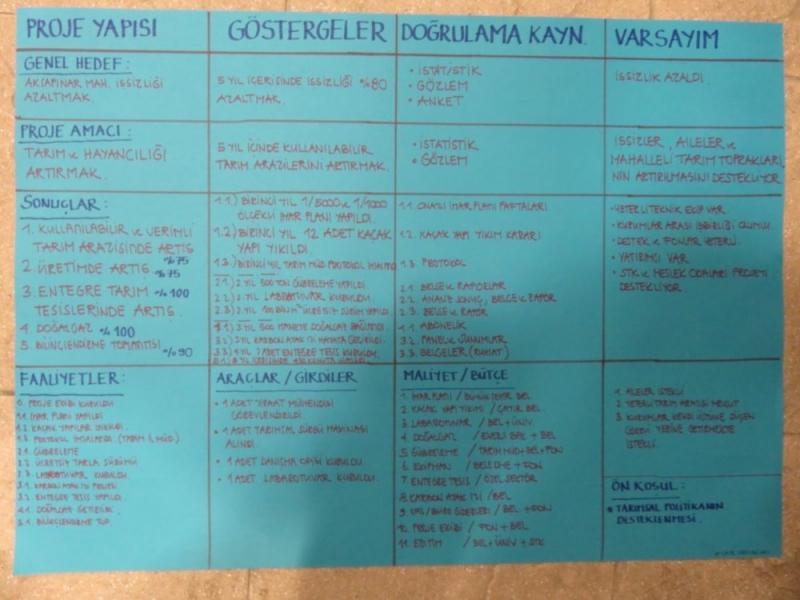 PROJE YAPISI
GÖSTERGELER
DOĞRULAMA KAYN.
VARSAYIM
GENEL HEDEF:
AKÇAPINAR MAH. İSSİZLİĞİ
AZALTMAK.
5 YIL İÇERİSİNDE İSSİZLİĞİ %80
AZALTMAK.
• İSTATİSTİK
• GÖZLEM
• ANKET
İSSİZLİK AZALDI
PROJE AMACI:
TARIM ve HAYVANCILIĞI
ARTIRMAK.
5 YIL İÇİNDE KULLANILABİLİR
TARIM ARAZİLERİNİ ARTIRMAK.
• İSTATİSTİK
• GÖZLEM
İSSİZLER, AİLELER ve
MAHALLELİ TARIM TOPRAKLARI
NIN ARTIRILMASINI DESTEKLİYOR
SONUÇLAR:
1. KULLANILABİLİR ve VERİMLİ
TARIM ARAZİSİNDE ARTIŞ
%75
2. ÜRETİMDE ARTIŞ %75
3. ENTEGRE TARIM %100
TESİSLERİNDE ARTIŞ.
4. DOĞALGAZ %100
5. BİLİNÇLENDİRME TOPLANTISI
%90
1.1.) BİRİNCİ YIL 1/5000 ve 1/1000
ÖLÇEKLİ İMAR PLANI YAPILDI.
1.2.) BİRİNCİ YIL 12 ADET KAÇAK
YAPI YIKILDI.
1.3.) BİRİNCİ YIL TARIM MÜD. PROTOKOL
2.1.) 2 YIL 500 TON GÜBRELEME YAPILDI
2.2.) 2 YIL LABORATUVAR KURULDU.
3.1.) 2 YIL 500 HANEYE DOĞALGAZ BAĞLANDI
1.1. ONAYLI İMAR PLANI PAFTALARI
1.2. KAÇAK YAPI YIKIM KARARI
1.3. PROTOKOL
2.1. BELGE ve RAPORLAR
2.2. ANALİZ SONUÇ, BELGE ve RAPOR
2.3. BELGE ve RAPOR
3.1. ABONELİK
3.2. PANEL ve SUNUMLAR
3.3. BELGELER (RUHSAT)
• YETERLİ TEKNİK EKİP VAR.
• KURUMLAR ARASI İŞBİRLİĞİ OLUMLU.
• DESTEK ve FONLAR YETERLİ.
• YATIRIMCI VAR
• STK ve MESLEK ODALARI PROJEYİ
DESTEKLİYOR.
FAALİYETLER:
0. PROJE EKİBİ KURULDU
1.1. İMAR PLANI YAPILDI
1.2. KAÇAK YAPILAR YIKILDI.
1.3. PROTOKOL İMZALANDI (TARIM İL MÜD.)
2.1. GÜBRELEME
2.2. ÜCRETSİZ TARLA SÜRÜMÜ
2.3. LABORATUVAR KURULDU.
3.1. KARBON AYAK İZİ PROJESİ
3.2. ENTEGRE TESİS YAPILDI.
4.1. DOĞALGAZ GETİRİLDİ.
5.1. BİLİNÇLENDİRME TOP.
ARAÇLAR / GİRDİLER
• 1 ADET ZİRAAT MÜHENDİSİ
GÖREVLENDİRİLDİ
• 1 ADET TARIMSAL SÜRÜŞ MAKİNASI
ALINDI.
• 1 ADET DANIŞMA OFİSİ KURULDU.
• 1 ADET LABORATUVAR KURULDU.
MALİYET / BÜTÇE
1. İMAR PLANI / BÜYÜKŞEHİR BEL.
2. KAÇAK YAPI YIKIMI / ÇAYIR. BEL.
3. LABORATUVAR / BEL + ÜNİV
4. DOĞALGAZ / ENERJİ BAK + BEL
5. GÜBRELEME / TARIM MÜD + BEL + FON
6. EKİPMAN / BELEDİYE + FON
7. ENTEGRE TESİS / ÖZEL SEKTÖR
8. KARBON AYAK İZİ / BEL
10. PROJE EKİBİ / FON + BEL
11. EĞİTİM / BEL + ÜNİV + STK
1. AİLELER İSTEKLİ
2. YETERLİ TARIM ARAZİSİ MEVCUT
3. KURUMLAR KENDİ ÜSTÜNE DÜŞEN
GÖREVİ YERİNE GETİRMEKTE
İSTEKLİ.
ÖN KOŞUL:
• TARIMSAL POLİTİKANIN
DESTEKLENMESİ.